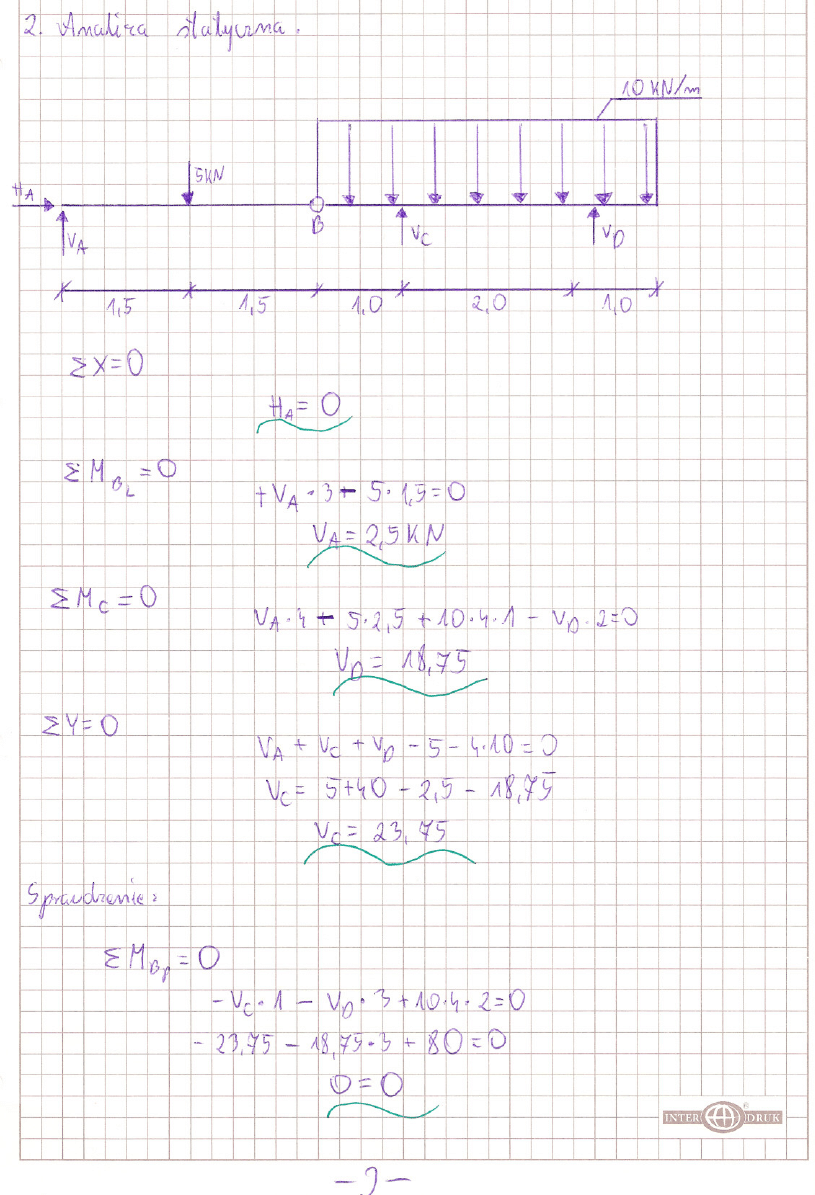 2. Analiza statyczna.
10 KN/m
5KN
H_A
B
V_A
V_C
V_D
1,5 1,5 1,0 2,0 1,0
ΣX=0
H_A = 0
ΣM_{B_L} = 0
+V_A · 3 - 5 · 1,5 = 0
V_A = 2,5 KN
ΣM_C = 0
V_A · 4 - 5 · 2,5 + 10 · 4 · 1 - V_D · 2 = 0
V_D = 18,75
ΣY = 0
V_A + V_C + V_D - 5 - 4·10 = 0
V_C = 5+40 - 2,5 - 18,75
V_C = 23,75
Sprawdzenie:
ΣM_{B_P} = 0
- V_C · 1 - V_D · 3 + 10 · 4 · 2 = 0
- 23,75 - 18,75 · 3 + 80 = 0
0 = 0
INTER DRUK